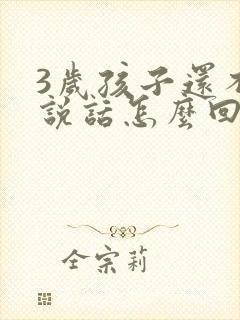 3歲孩子還不
說話怎麼回
仝宗莉